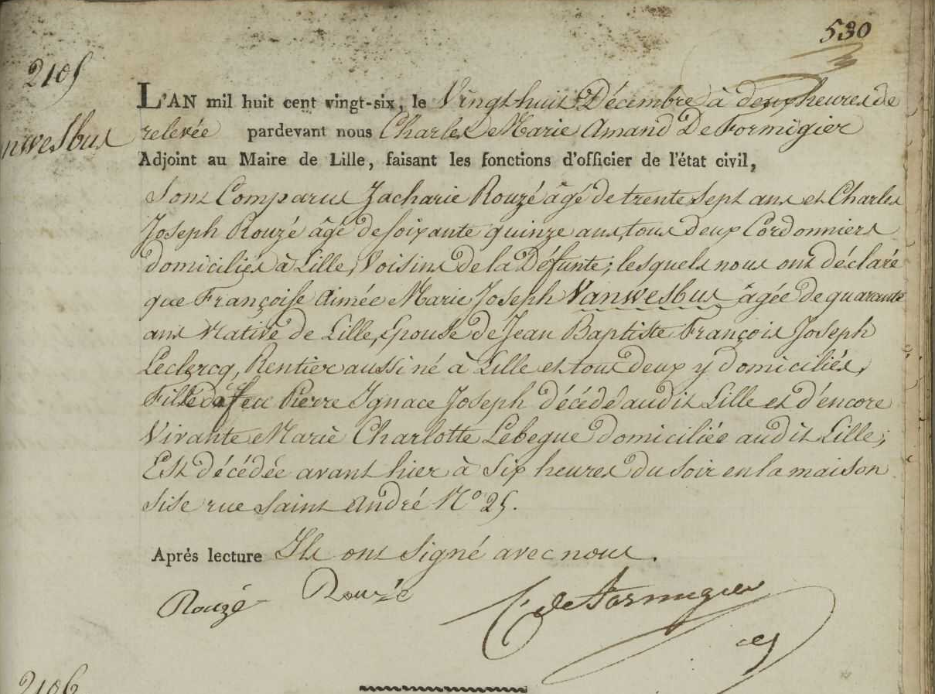 530
2105
nwesbus
L'AN mil huit cent vingt-six, le Vingt huit Décembre à deux heures de
relevée pardevant nous Charles Marie Amand De Formigier
Adjoint au Maire de Lille, faisant les fonctions d'officier de l'état civil,
Sont Comparus Zacharie Rouzé âgé de trente sept ans et Charles
Joseph Rouzé âgé de soixante quinze ans, tous deux Cordonniers
domiciliés à Lille, Voisins de la Défunte; lesquels nous ont déclaré
que Françoise Aimée Marie Joseph Vanwesbus âgée de quarante
ans Native de Lille, Epouse de Jean Baptiste François Joseph
Leclercq, Rentier aussi né à Lille et tous deux y domiciliés,
Fille de feu Pierre Ignace Joseph décédé audit Lille et d'encore
Vivante Marie Charlotte Lebegue domiciliée audit Lille;
Est décédée avant hier à Six heures du soir en la maison
sise rue Saint André N° 25.
Aprés lecture Ils ont signé avec nous.
Rouzé Rouzé C. de Formigier
2106